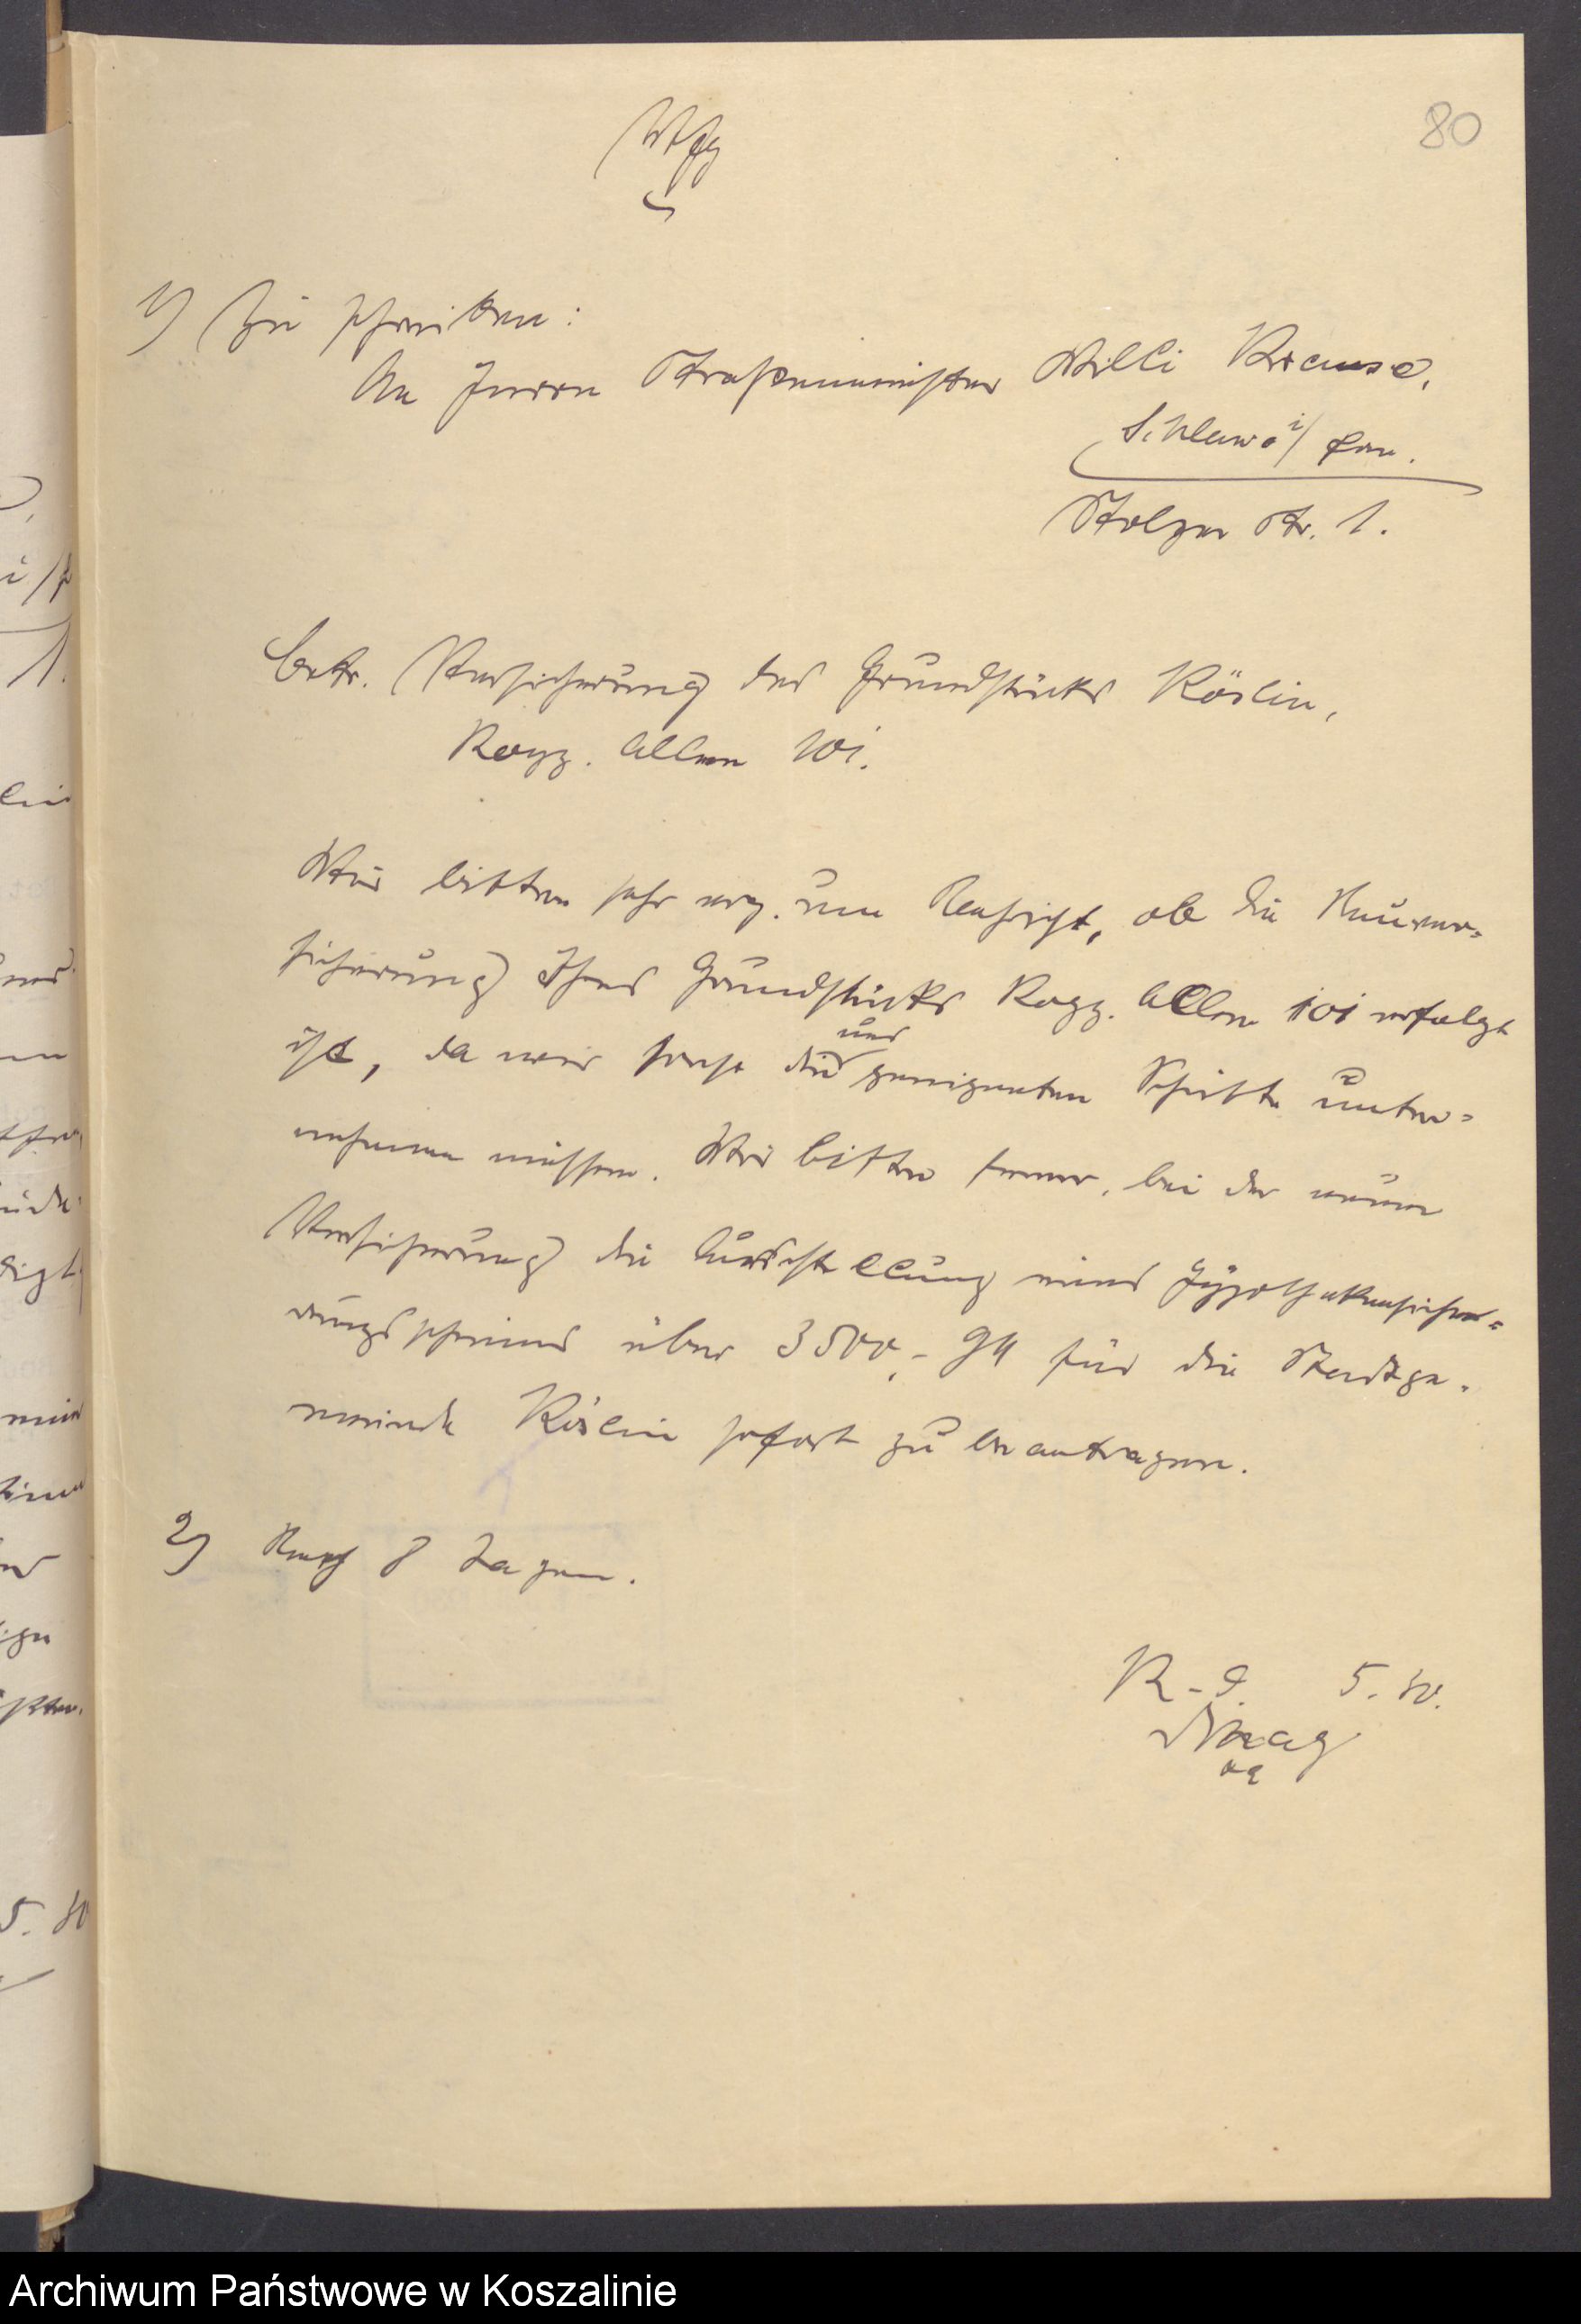 80
Vfg
1) Zu schreiben:
An Herrn Straßenmeister Willi Krause,
Schlawe i/ Pom.
Stolper Str. 1.
betr. Versicherung des Grundstücks Köslin,
Rogz. Allee 101.
Wir bitten sehr erg. um Nachricht, ob die Neuver-
sicherung Ihres Grundstücks Rogz. Allee 101 erfolgt
ist, da wir sonst die uns geeigneten Schritte unter-
nehmen müssen. Wir bitten ferner, bei der neuen
Versicherung die Ausstellung eines Hypothekensiche-
rungsscheines über 3500,- GM für die Stadtge-
meinde Köslin sofort zu beantragen.
2) Nach 8 Tagen.
K-9. 5.10.